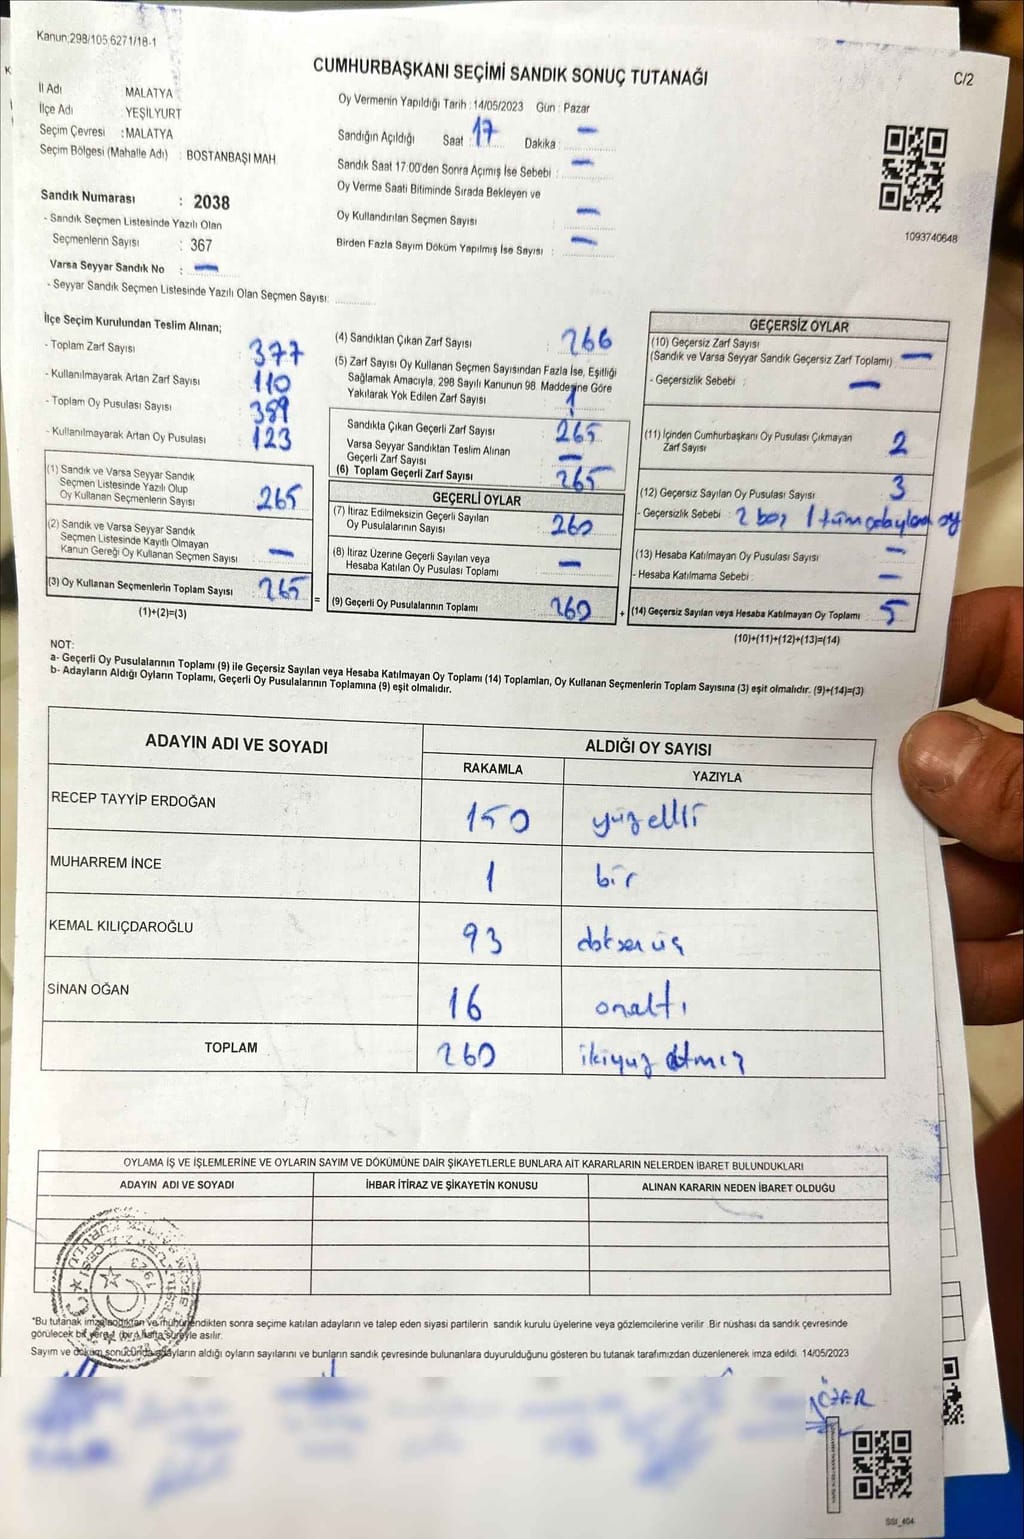 Kanun:298/105,6271/18-1
CUMHURBAŞKANI SEÇİMİ SANDIK SONUÇ TUTANAĞI
C/2
İl Adı MALATYA
İlçe Adı YEŞİLYURT
Seçim Çevresi : MALATYA
Seçim Bölgesi (Mahalle Adı) : BOSTANBAŞI MAH
Oy Vermenin Yapıldığı Tarih : 14/05/2023 Gün : Pazar
Sandığın Açıldığı Saat : 17 Dakika : —
Sandık Saat 17:00'den Sonra Açımış İse Sebebi : —
Oy Verme Saati Bitiminde Sırada Bekleyen ve
Oy Kullandırılan Seçmen Sayısı —
Birden Fazla Sayım Döküm Yapılmış İse Sayısı : —
1093740648
Sandık Numarası : 2038
- Sandık Seçmen Listesinde Yazılı Olan
Seçmenlerin Sayısı : 367
Varsa Seyyar Sandık No : —
- Seyyar Sandık Seçmen Listesinde Yazılı Olan Seçmen Sayısı:
İlçe Seçim Kurulundan Teslim Alınan;
- Toplam Zarf Sayısı 377
- Kullanılmayarak Artan Zarf Sayısı 110
- Toplam Oy Pusulası Sayısı 389
- Kullanılmayarak Artan Oy Pusulası 123
(1) Sandık ve Varsa Seyyar Sandık
Seçmen Listesinde Yazılı Olup
Oy Kullanan Seçmenlerin Sayısı 265
(2) Sandık ve Varsa Seyyar Sandık
Seçmen Listesinde Kayıtlı Olmayan
Kanun Gereği Oy Kullanan Seçmen Sayısı : —
(3) Oy Kullanan Seçmenlerin Toplam Sayısı : 265 =
(1)+(2)=(3)
(4) Sandıktan Çıkan Zarf Sayısı : 266
(5) Zarf Sayısı Oy Kullanan Seçmen Sayısından Fazla İse, Eşitliği
Sağlamak Amacıyla, 298 Sayılı Kanunun 98. Maddesine Göre
Yakılarak Yok Edilen Zarf Sayısı 1
Sandıkta Çıkan Geçerli Zarf Sayısı : 265
Varsa Seyyar Sandıktan Teslim Alınan
Geçerli Zarf Sayısı : —
(6) Toplam Geçerli Zarf Sayısı : 265
GEÇERLİ OYLAR
(7) İtiraz Edilmeksizin Geçerli Sayılan
Oy Pusulalarının Sayısı : 260
(8) İtiraz Üzerine Geçerli Sayılan veya
Hesaba Katılan Oy Pusulası Toplamı : —
(9) Geçerli Oy Pusulalarının Toplamı : 260 +
GEÇERSİZ OYLAR
(10) Geçersiz Zarf Sayısı
(Sandık ve Varsa Seyyar Sandık Geçersiz Zarf Toplamı) : —
- Geçersizlik Sebebi : —
(11) İçinden Cumhurbaşkanı Oy Pusulası Çıkmayan
Zarf Sayısı 2
(12) Geçersiz Sayılan Oy Pusulası Sayısı : 3
- Geçersizlik Sebebi : 2 boş 1 tüm adaylara oy
(13) Hesaba Katılmayan Oy Pusulası Sayısı : —
- Hesaba Katılmama Sebebi : —
(14) Geçersiz Sayılan veya Hesaba Katılmayan Oy Toplamı : 5
(10)+(11)+(12)+(13)=(14)
NOT:
a- Geçerli Oy Pusulalarının Toplamı (9) ile Geçersiz Sayılan veya Hesaba Katılmayan Oy Toplamı (14) Toplamları, Oy Kullanan Seçmenlerin Toplam Sayısına (3) eşit olmalıdır. (9)+(14)=(3)
b- Adayların Aldığı Oyların Toplamı, Geçerli Oy Pusulalarının Toplamına (9) eşit olmalıdır.
ADAYIN ADI VE SOYADI ALDIĞI OY SAYISI
RAKAMLA YAZIYLA
RECEP TAYYİP ERDOĞAN 150 yüzelli
MUHARREM İNCE 1 bir
KEMAL KILIÇDAROĞLU 93 doksan üç
SİNAN OĞAN 16 onaltı
TOPLAM 260 ikiyüz atmış
OYLAMA İŞ VE İŞLEMLERİNE VE OYLARIN SAYIM VE DÖKÜMÜNE DAİR ŞİKAYETLERLE BUNLARA AİT KARARLARIN NELERDEN İBARET BULUNDUKLARI
ADAYIN ADI VE SOYADI İHBAR İTİRAZ VE ŞİKAYETİN KONUSU ALINAN KARARIN NEDEN İBARET OLDUĞU
T.C. 1923
*Bu tutanak imzalandıktan ve mühürlendikten sonra seçime katılan adayların ve talep eden siyasi partilerin sandık kurulu üyelerine veya gözlemcilerine verilir. Bir nüshası da sandık çevresinde
görülecek bir yere 1 (bir) hafta süreyle asılır.
Sayım ve döküm sonucunda adayların aldığı oyların sayılarını ve bunların sandık çevresinde bulunanlara duyurulduğunu gösteren bu tutanak tarafımızdan düzenlenerek imza edildi. 14/05/2023
ÖZER
SSI_404